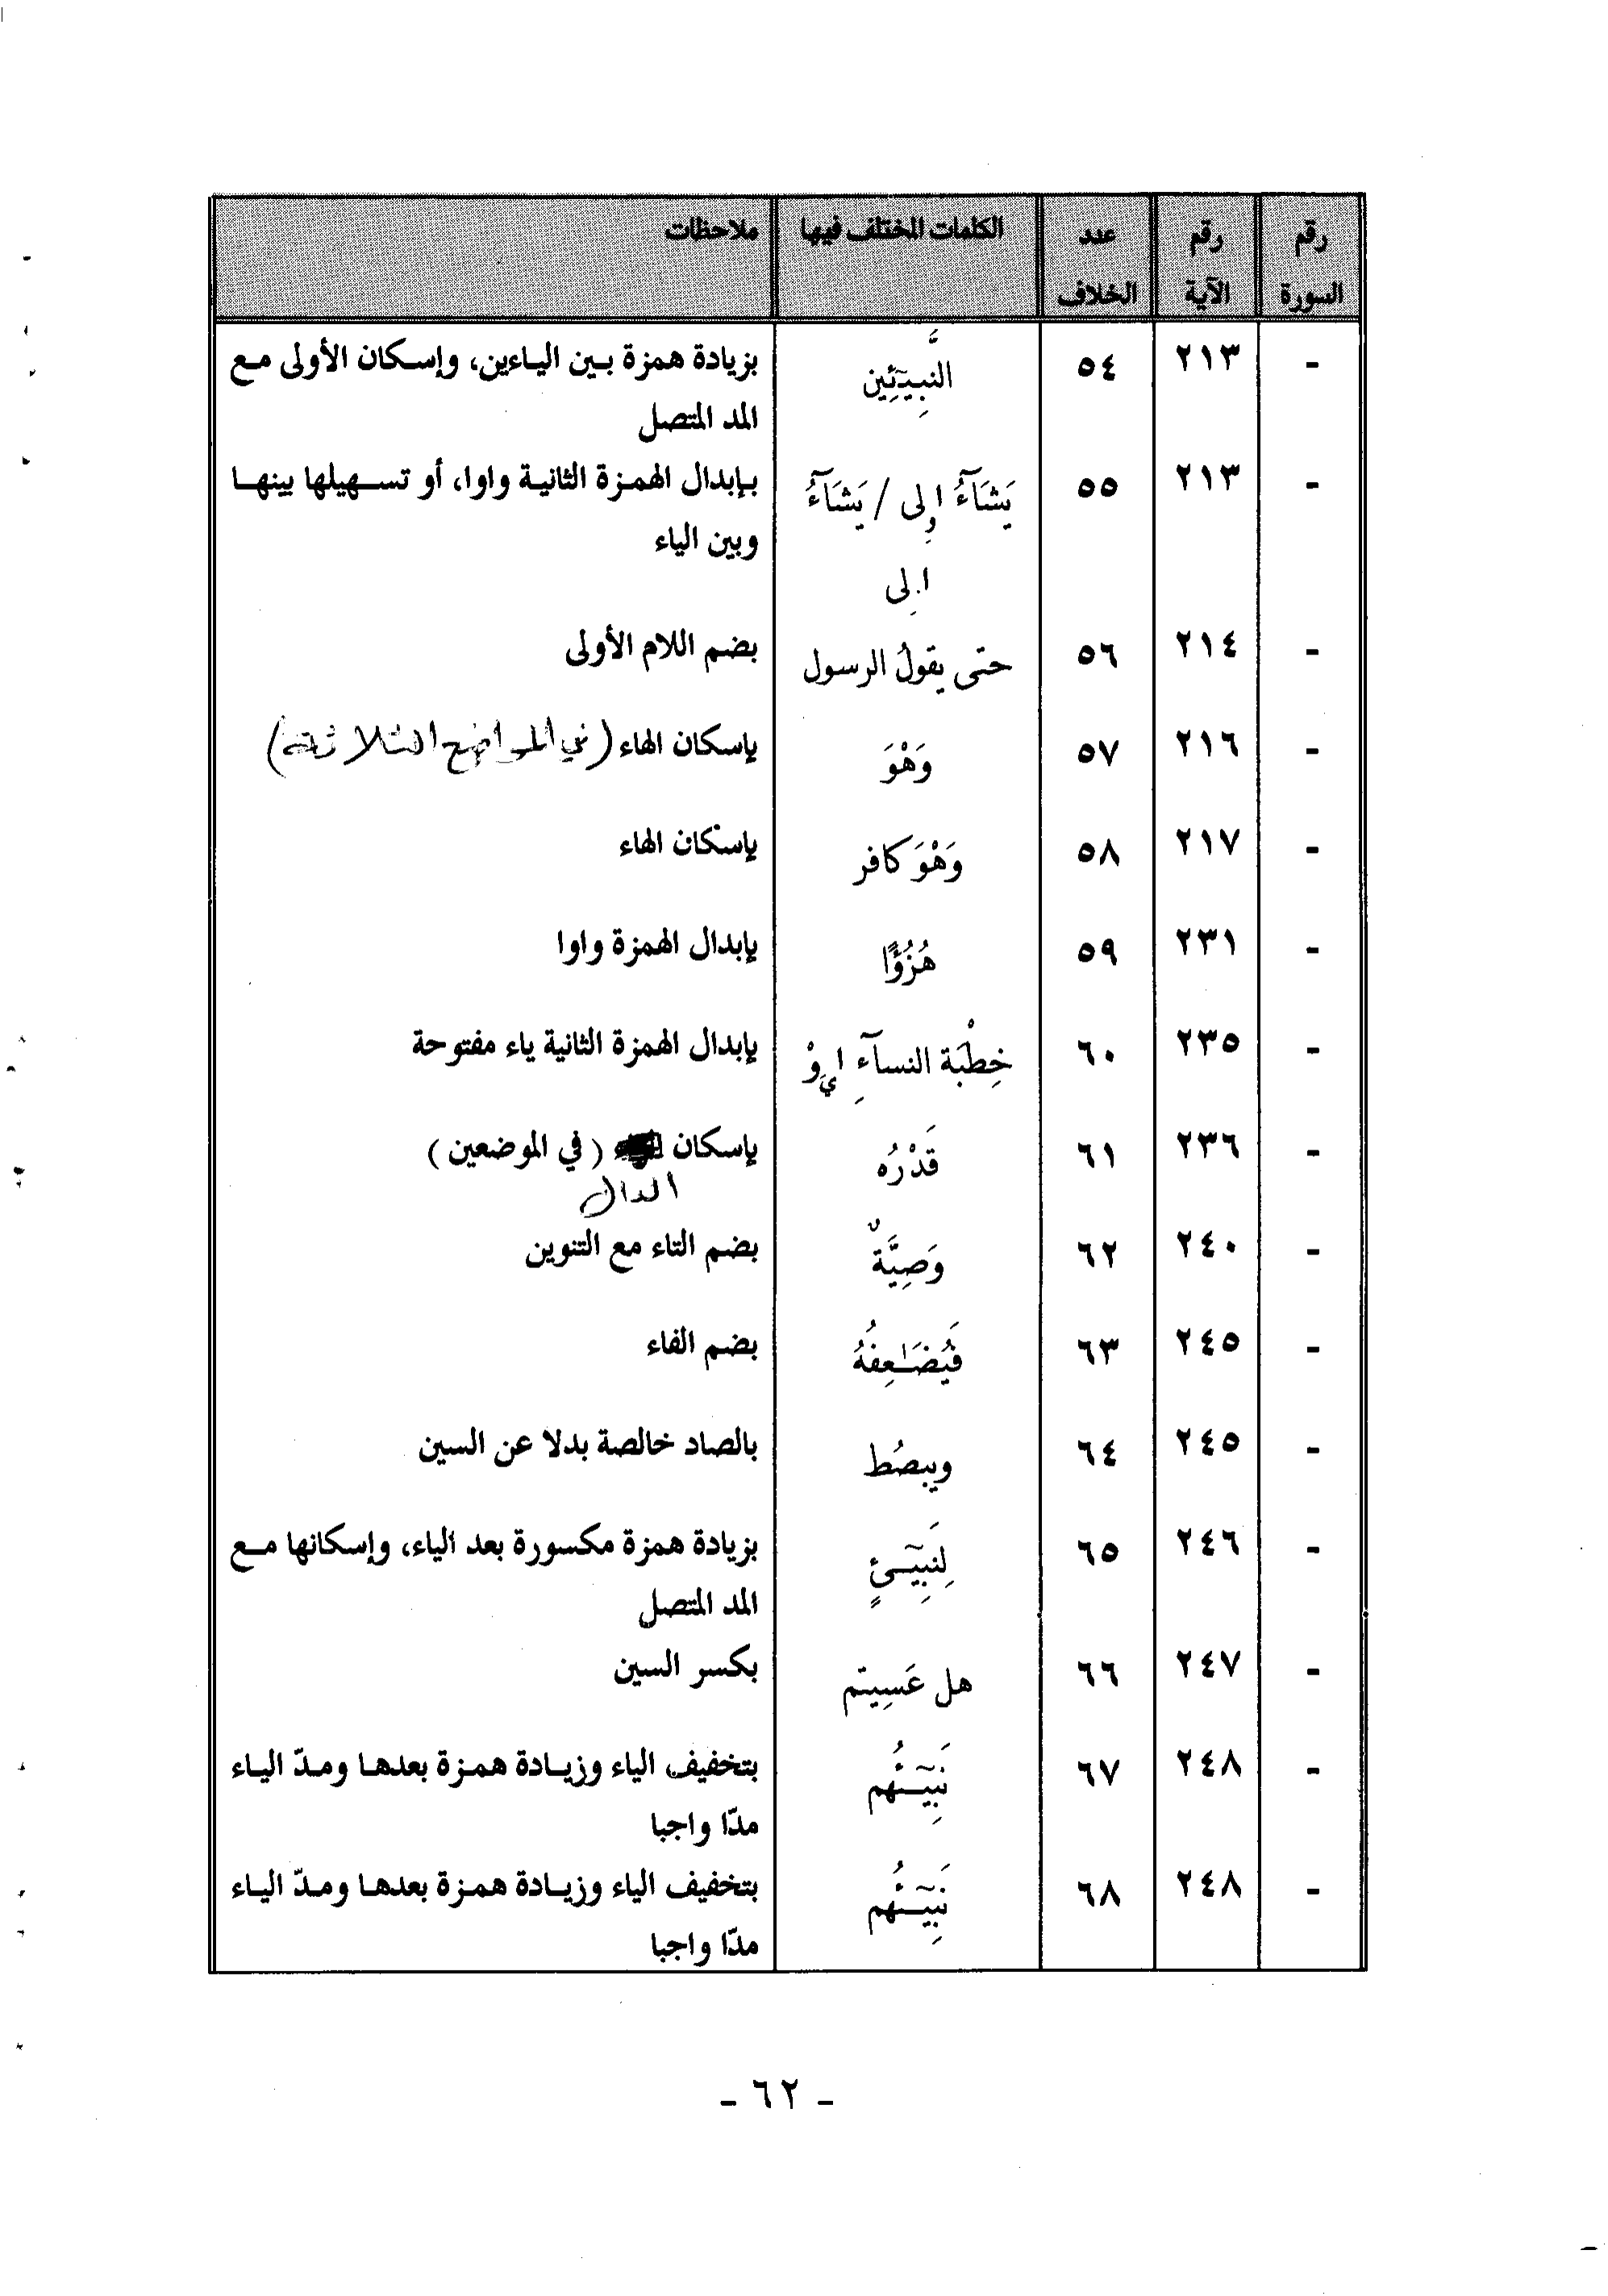 رقم السورة | رقم الآية | عدد الخلاف | الكلمات المختلف فيها | ملاحظات
- | ٢١٣ | ٥٤ | النَّبِيٓـِٔين | بزيادة همزة بين الياءين، وإسكان الأولى مع
المد المتصل
- | ٢١٣ | ٥٥ | يَشَآءُ اوِلى / يَشَآءُ | بإبدال الهمزة الثانية واوا، أو تسهيلها بينها
ا.ِلى | وبين الياء
- | ٢١٤ | ٥٦ | حتى يقولُ الرسول | بضم اللام الأولى
- | ٢١٦ | ٥٧ | وَهْوَ | بإسكان الهاء (في المواضع الثلاثة)
- | ٢١٧ | ٥٨ | وَهْوَ كافر | بإسكان الهاء
- | ٢٣١ | ٥٩ | هُزُؤًا | بإبدال الهمزة واوا
- | ٢٣٥ | ٦٠ | خِطْبَة النسآءِ ايَوْ | بإبدال الهمزة الثانية ياء مفتوحة
- | ٢٣٦ | ٦١ | قَدْرُه | بإسكان (في الموضعين)
الدال
- | ٢٤٠ | ٦٢ | وَصِيَّةٌ | بضم التاء مع التنوين
- | ٢٤٥ | ٦٣ | فَيُضَـٰعِفُهُ | بضم الفاء
- | ٢٤٥ | ٦٤ | ويبصُط | بالصاد خالصة بدلا عن السين
- | ٢٤٦ | ٦٥ | لِنَبِيٓـئٍ | بزيادة همزة مكسورة بعد الياء، وإسكانها مع
المد المتصل
- | ٢٤٧ | ٦٦ | هل عَسِيتم | بكسر السين
- | ٢٤٨ | ٦٧ | نَبِيٓـُٔهم | بتخفيف الياء وزيادة همزة بعدها ومدّ الياء
مدّا واجبا
- | ٢٤٨ | ٦٨ | نَبِيٓـُٔهم | بتخفيف الياء وزيادة همزة بعدها ومدّ الياء
مدّا واجبا
- ٦٢ -